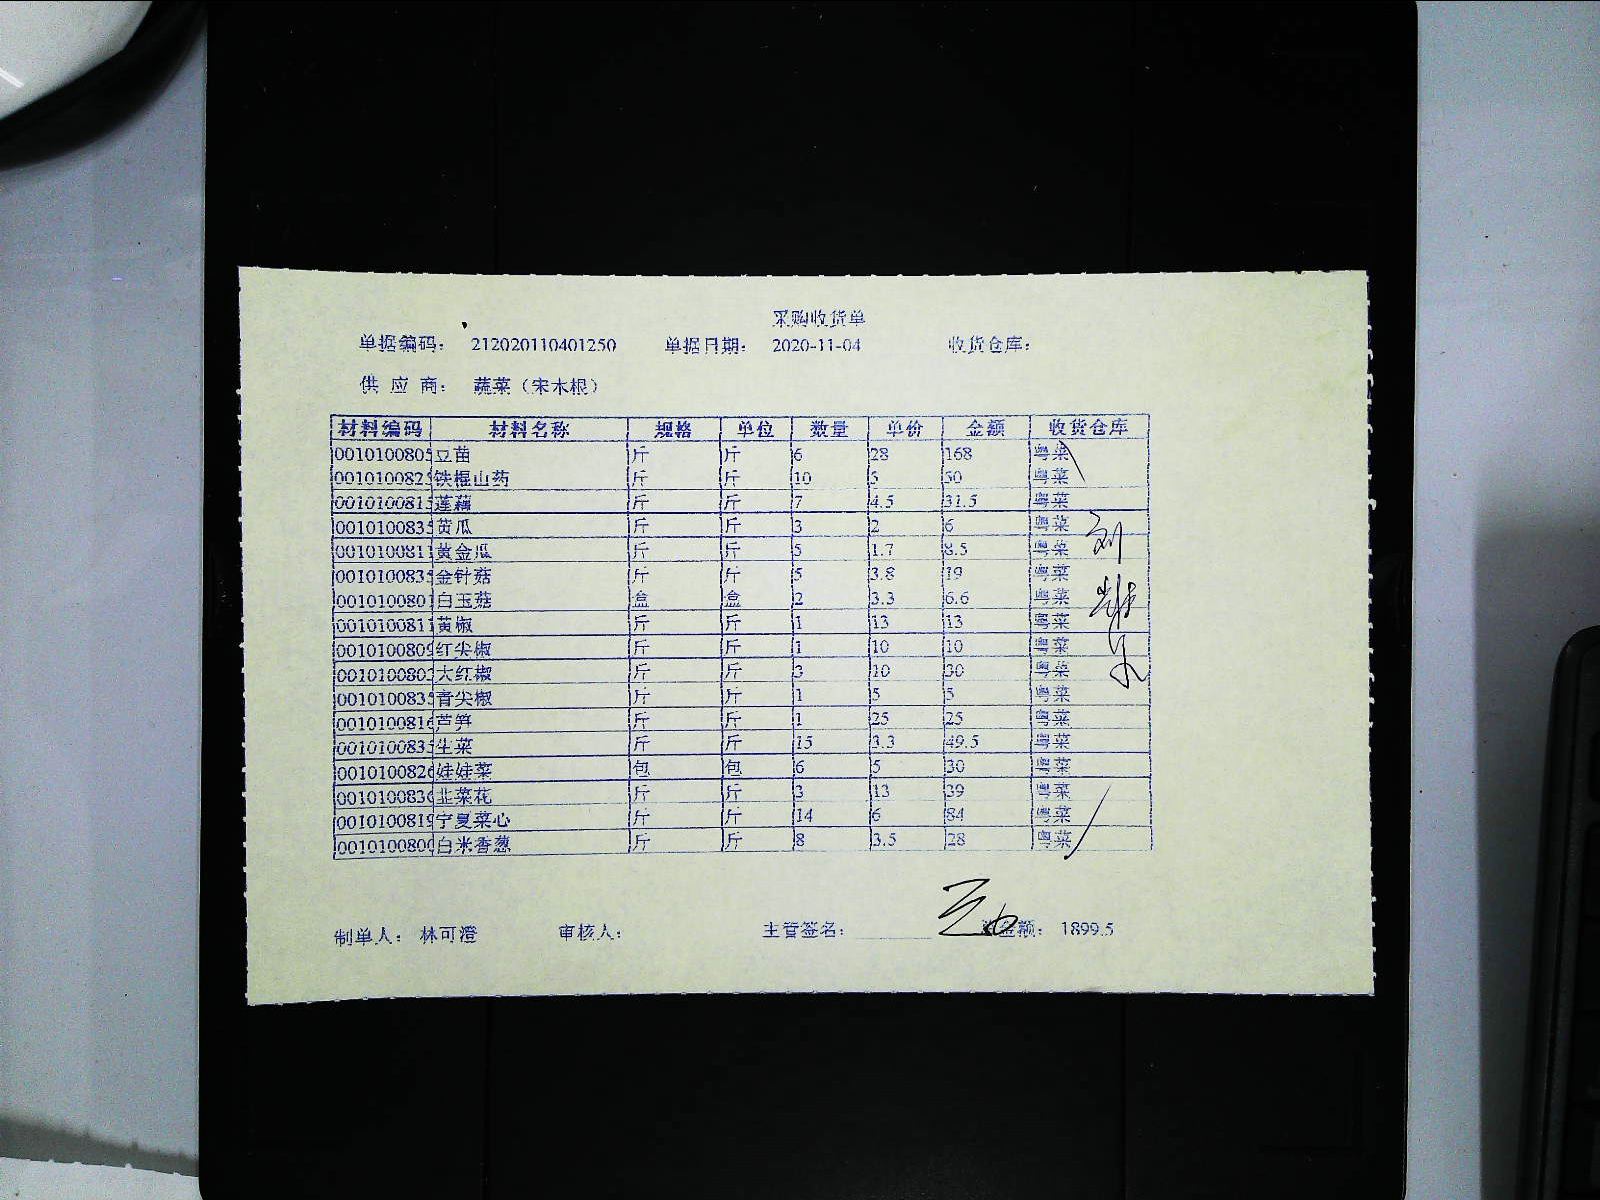 采购收货单
单据编码： 212020110401250 单据日期： 2020-11-04 收货仓库：
供 应 商： 蔬菜（宋木根）
材料编码 材料名称 规格 单位 数量 单价 金额 收货仓库
0010100805 豆苗 斤 斤 6 28 168 粤菜
0010100825 铁棍山药 斤 斤 10 5 50 粤菜
0010100815 莲藕 斤 斤 7 4.5 31.5 粤菜
0010100835 黄瓜 斤 斤 3 2 6 粤菜
0010100811 黄金瓜 斤 斤 5 1.7 8.5 粤菜
0010100835 金针菇 斤 斤 5 3.8 19 粤菜
0010100801 白玉菇 盒 盒 2 3.3 6.6 粤菜
0010100811 黄椒 斤 斤 1 13 13 粤菜
0010100809 红尖椒 斤 斤 1 10 10 粤菜
0010100803 大红椒 斤 斤 3 10 30 粤菜
0010100835 青尖椒 斤 斤 1 5 5 粤菜
0010100816 芦笋 斤 斤 1 25 25 粤菜
0010100835 生菜 斤 斤 15 3.3 49.5 粤菜
0010100826 娃娃菜 包 包 6 5 30 粤菜
0010100836 韭菜花 斤 斤 3 13 39 粤菜
0010100819 宁夏菜心 斤 斤 14 6 84 粤菜
0010100800 白米香葱 斤 斤 8 3.5 28 粤菜
制单人： 林可澄 审核人： 主管签名： 金额： 1899.5